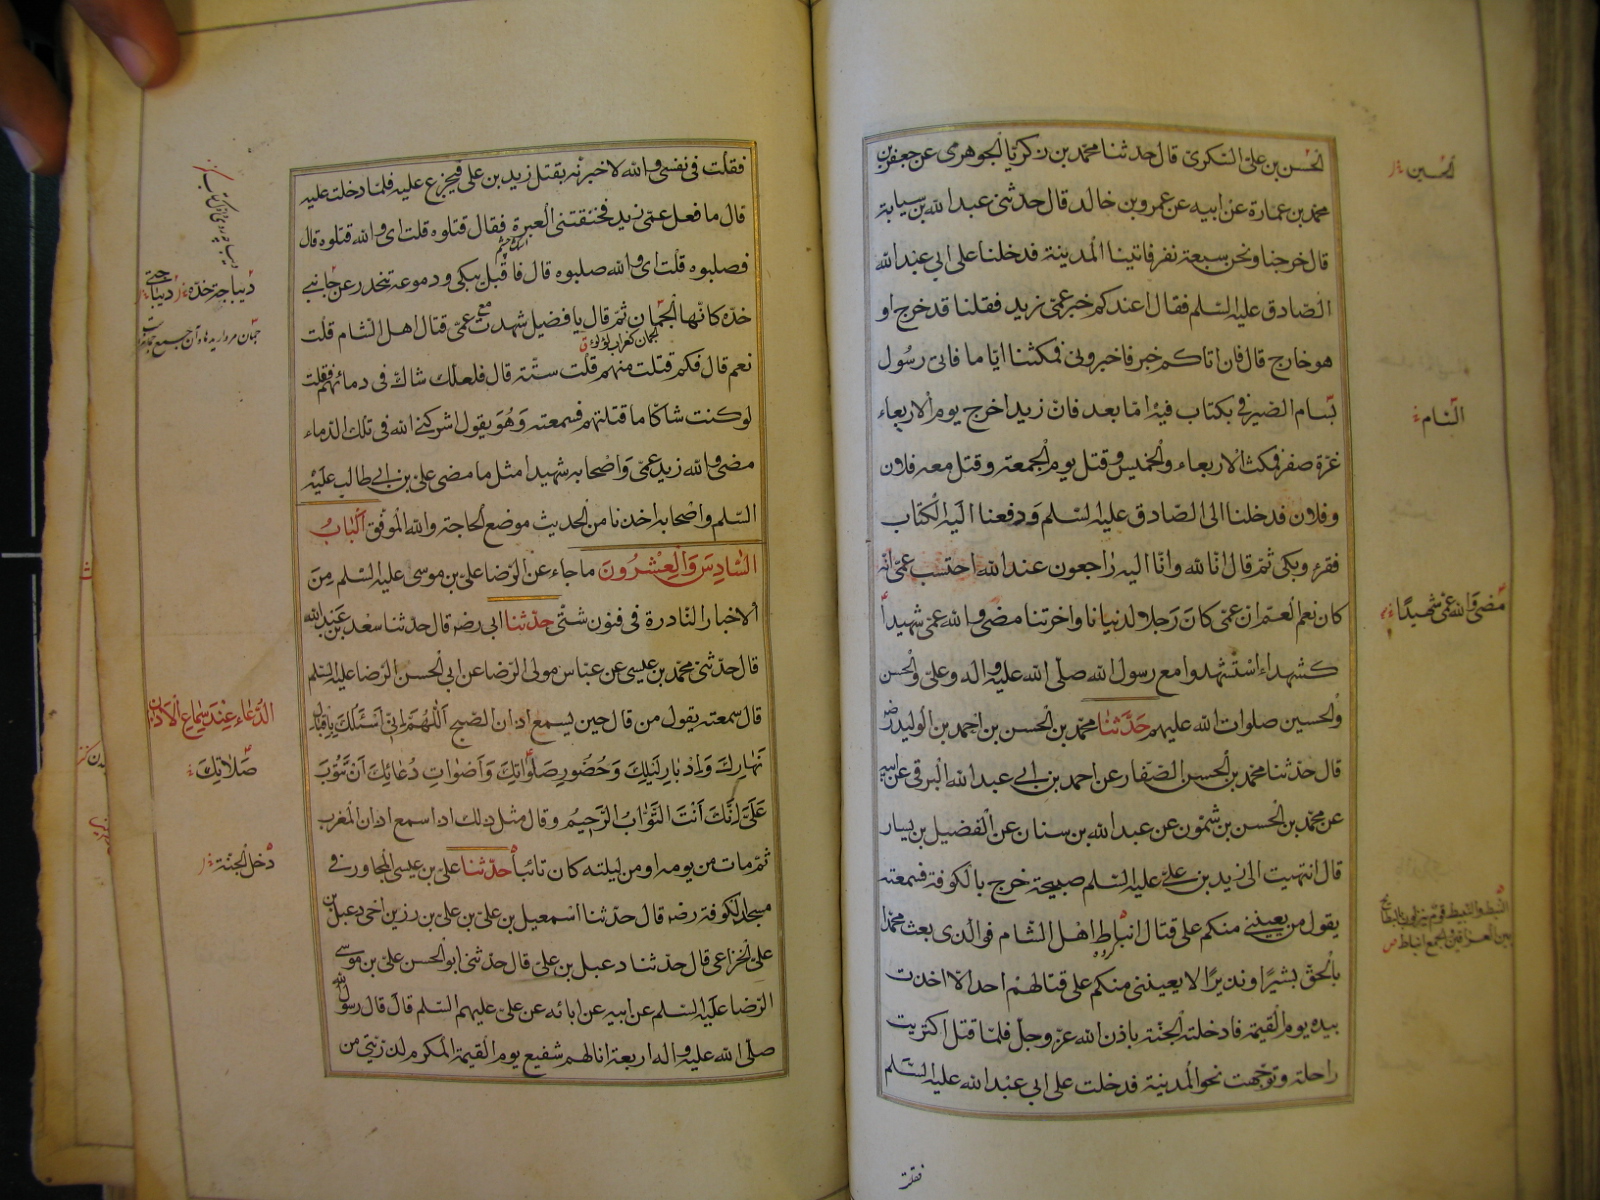 الحسن بن علىّ السّكرى قال حدثنا محمد بن زكريّا الجوهرى عن جعفر بن
محمد بن عمارة عن ابيه عن عمرو بن خالد قال حدثنى عبد الله بن سيابة
قال خرجنا ونحن سبعة نفر فاتينا المدينة فدخلنا على ابى عبد الله
الصّادق عليه السّلم فقال اعندكم خبر عمّى زيد فقلنا قد خرج او
هو خارج قال فان اتاكم خبر فاخبرونى فمكثنا ايّاما فاتى رسول
بسّام الصّيرفى بكتاب فيه امّا بعد فانّ زيدا خرج يوم الاربعاء
غرّة صفر فمكث الاربعاء والخميس وقتل يوم الجمعة وقتل معه فلان
وفلان فدخلنا الى الصّادق عليه السّلم ودفعنا اليه الكتاب
فقرء وبكى ثمّ قال انّا لله وانّا اليه راجعون عند الله احتسب عمّى انّه
كان نعم العمّ ان عمّى كان رجلا لدنيانا واخرتنا مضى والله عمّى شهيداً
كشهداء استشهدوا مع رسول الله صلّى الله عليه واله وعلى والحسن
والحسين صلوات الله عليهم حدّثنا محمّد بن الحسن بن احمد بن الوليد رضه
قال حدّثنا محمّد بن الحسن الصّفار عن احمد بن ابى عبد الله البرقى عن ابيه
عن محمّد بن الحسن بن شمّون عن عبد الله بن سنان عن الفضيل بن يسار
قال انتهيت الى زيد بن علىّ عليه السّلم صبيحة خرج بالكوفة فسمعته
يقول من يعيننى منكم على قتال انباط اهل الشّام فوالّذى بعث محمّدا
بالحقّ بشيرًا ونذيرًا لا يعيننى منكم على قتالهم احد الّا اخذت
بيده يوم القيمة فادخلته الجنّة باذن الله عزّ وجلّ فلمّا قتل اكتريت
راحلة وتوجّهت نحو المدينة فدخلت على ابى عبد الله عليه السّلم
الحسين
السّام
مضى والله عمّى شهيدًا
النّبط والنّبيط قوم ينزلون بالبطائح
بين العراقين والجمع انباط ص
فقلت
فقلت فى نفسى والله لا خبرنّه بقتل زيد بن على فيجزع عليه فلمّا دخلت عليه
قال ما فعل عمّى زيد فخنقتنى العبرة فقال قتلوه قلت اى والله قتلوه قال
فصلبوه قلت اى والله صلبوه قال فاقبل يبكى ودموعه تنحدر عن جانبى
خدّه كانّها الجمان ثمّ قال يا فضيل شهدت مع عمّى قتال اهل الشّام قلت
نعم قال فكم قتلت منهم قلت ستّة قال فلعلّك شاكّ فى دمائهم فقلت
لو كنت شاكّا ما قتلتهم فسمعته وهو يقول اشركنى الله فى تلك الدّماء
مضى والله زيد عمّى واصحابه شهيدا مثل ما مضى على بن ابى طالب عليه
السّلم واصحابه اخذنا من الحديث موضع الحاجة والله الموفّق الباب
السّادس والعشرون ما جاء عن الرّضا على بن موسى عليه السّلم من
الاخبار النّادرة فى فنون شتّى حدّثنا ابى رضه قال حدّثنا سعد بن عبد الله
قال حدّثنى محمّد بن عيسى عن عبّاس مولى الرّضا عن ابى الحسن الرّضا عليه السّلم
قال سمعته يقول من قال حين يسمع اذان الصّبح اللّهمّ انّى اسئلك باقبال
نهارك وادبار ليلك وحضور صلواتك واصوات دعائك ان تتوب
علىّ انّك انت التّوّاب الرّحيم وقال مثل ذلك اذا سمع اذان المغرب
ثمّ مات من يومه او من ليلته كان تائباً حدّثنا على بن عيسى المجاور فى
مسجد الكوفة رضه قال حدّثنا اسمعيل بن على بن على بن رزين اخى دعبل بن
على الخزاعى قال حدّثنا دعبل بن على قال حدّثنى ابو الحسن على بن موسى
الرّضا عليه السّلم عن ابيه عن ابائه عن على عليهم السّلم قال قال رسول الله
صلّى الله عليه واله اربعة انا لهم شفيع يوم القيمة المكرم لذرّيّتى من
ديباجة خدّه
ديباجتى
الدّعاء عند سماع الاذان
صلاتك
دخل الجنّة